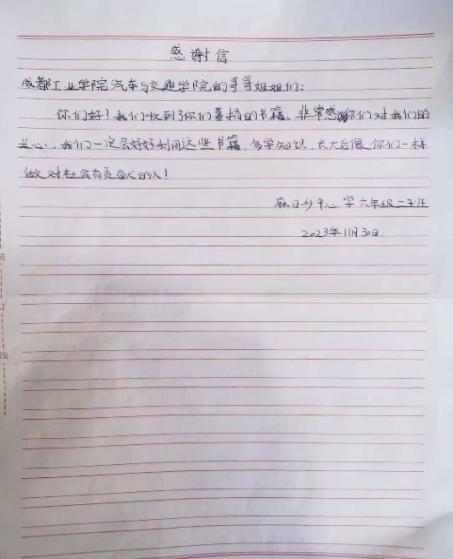 感谢信
成都工业学院汽车与交通学院的哥哥姐姐们：
你们好！我们收到了你们募捐的书籍，非常感谢你们对我们的
关心，我们一定会好好利用这些书籍，多学知识，长大后像你们一样
做对社会有贡献的人！
中心学六年级二班
2023年11月30日
订
线